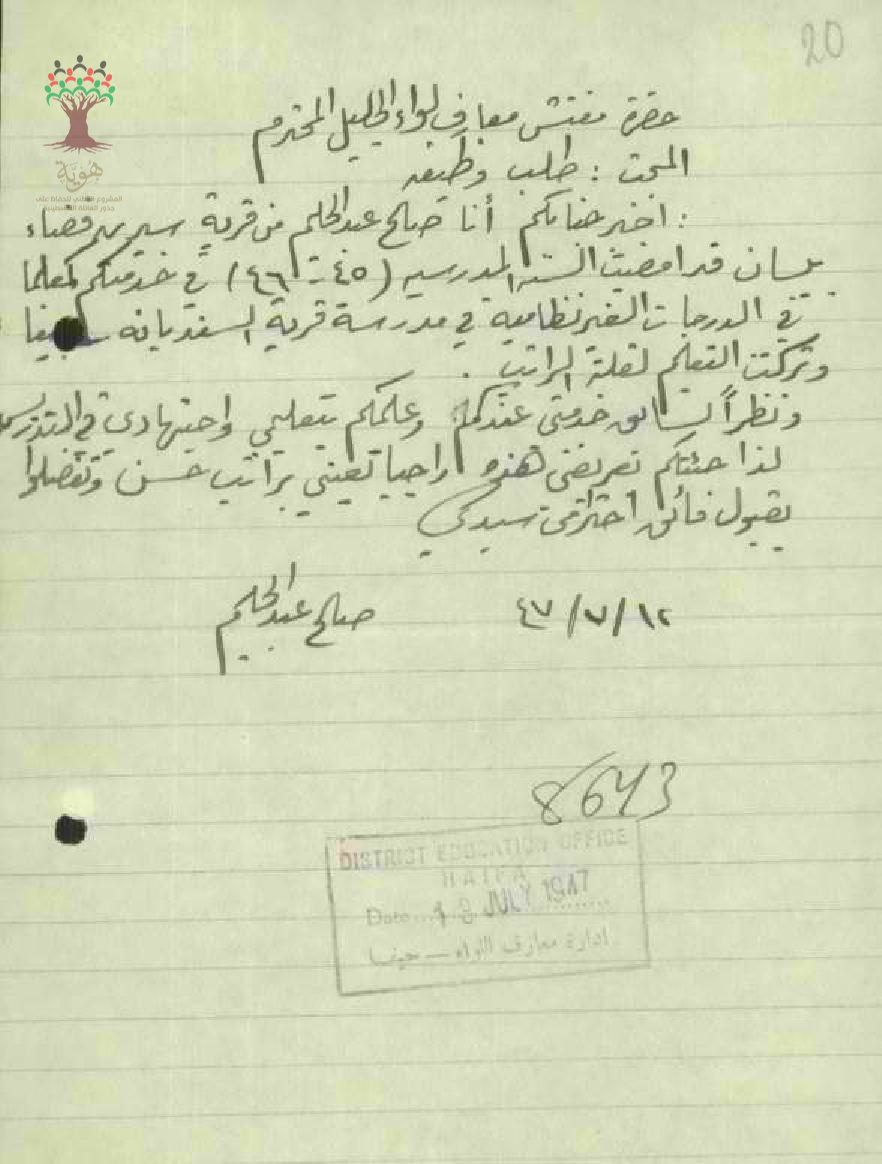 20
هَوِيَّة
المشروع الوطني للحفاظ على
جذور العائلة الفلسطينية
حضرة مفتش معارف لواء الجليل المحترم
المبحث : طلب وظيفه
: اخبر جنابكم أنا صالح عبد الحليم من قرية سيرين قضاء
بيسان قد امضيت السنه المدرسيه (٤٥ - ٤٦) في خدمتكم كمعلما
في الدرجات الغير نظاميه في مدرسة قرية السنديانه
وتركت التعليم لقلة الراتب .
ونظراً لسابق خدمتي عندكم وعلمكم بتعليمي واجتهادي في التدريس
لذا جئتكم بعريضتي هذه راجيا تعييني براتب حسن وتفضلوا
بقبول فائق احترامي سيدي
١٢/٧/٤٧
صالح عبد الحليم
8643
DISTRICT EDUCATION OFFICE
HAIFA
Date 18 JULY 1947
ادارة معارف اللواء — حيفا